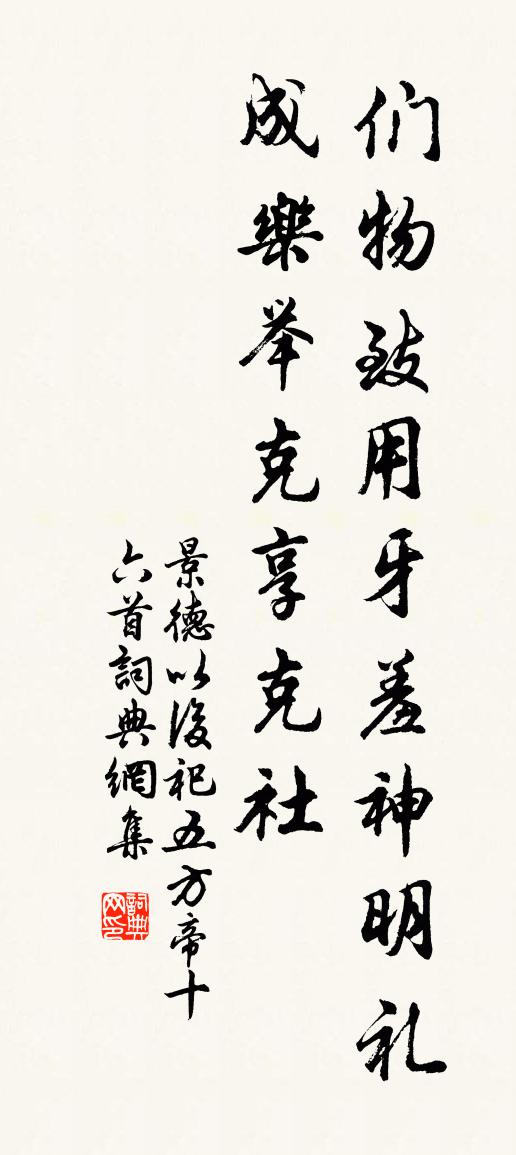 们物致用牙羞神明礼
成樂举克享克社
景德以後祀五方帝十
六首詞典網集
詞典网印